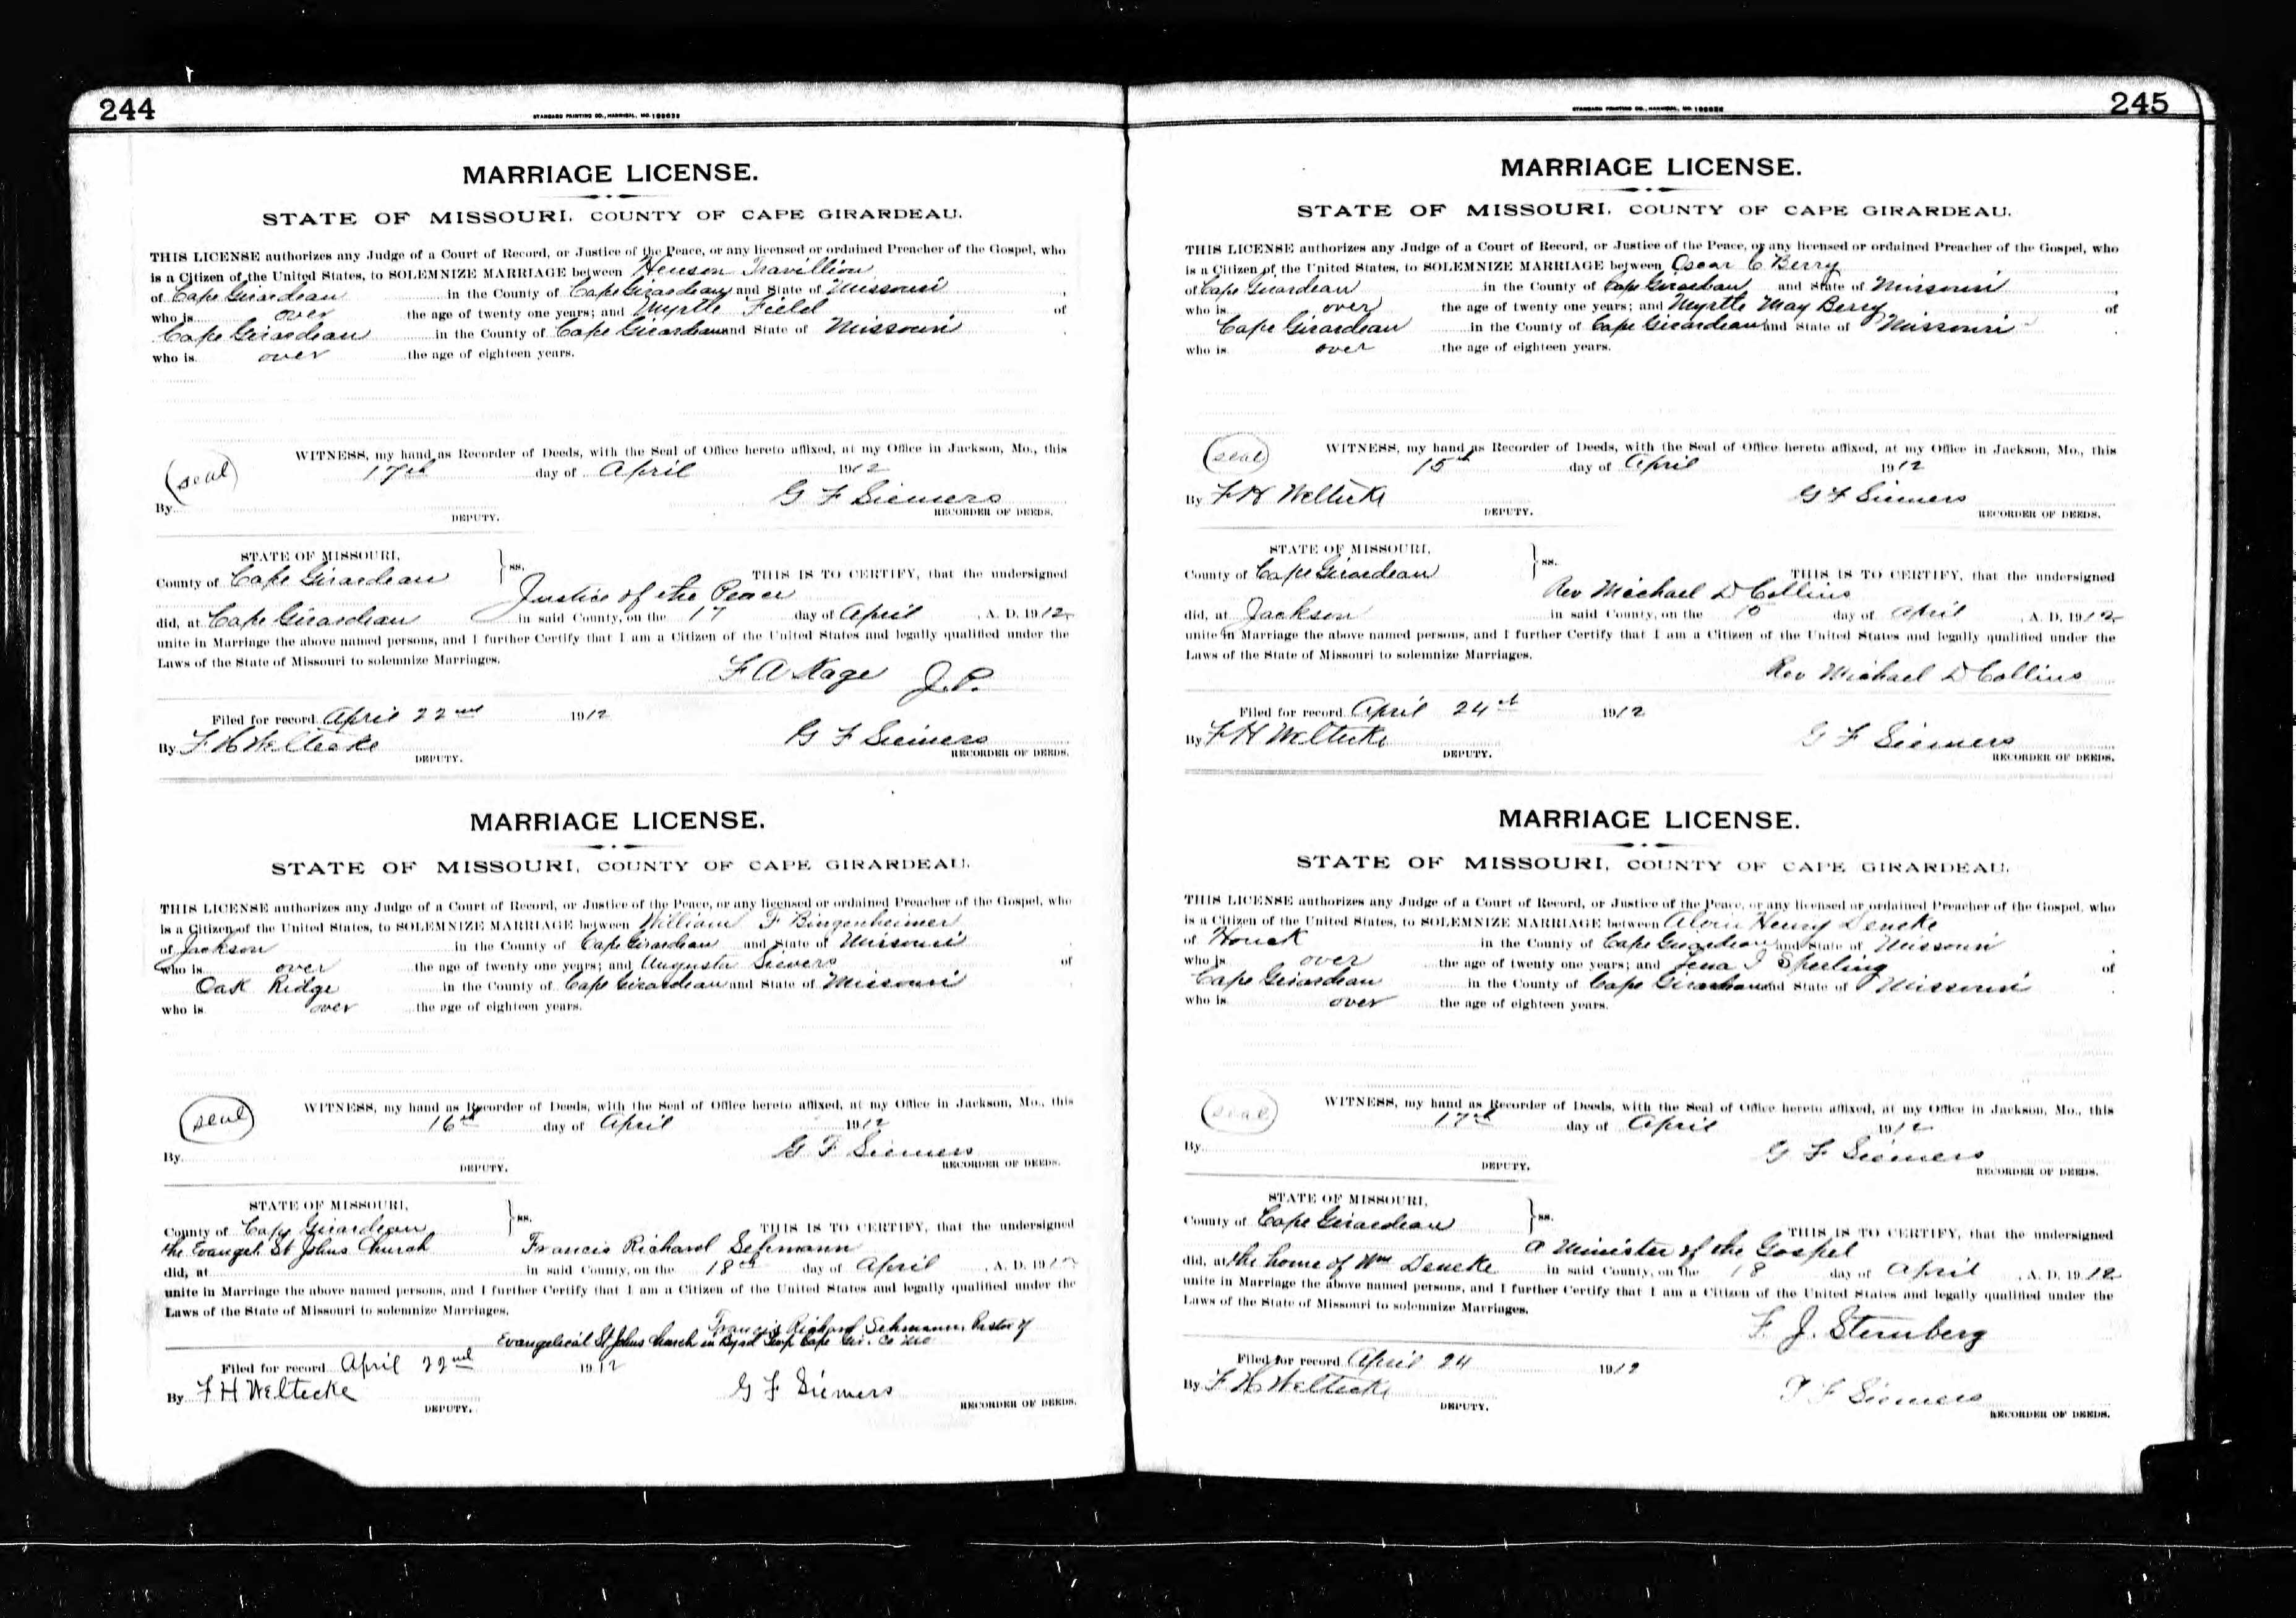 244
STANDARD PRINTING CO., HANNIBAL, MO.
MARRIAGE LICENSE.
STATE OF MISSOURI, COUNTY OF CAPE GIRARDEAU.
THIS LICENSE authorizes any Judge of a Court of Record, or Justice of the Peace, or any licensed or ordained Preacher of the Gospel, who
is a Citizen of the United States, to SOLEMNIZE MARRIAGE between Henson Travillion
of Cape Girardeau in the County of Cape Girardeau and State of Missouri,
who is over the age of twenty one years; and Myrtle Field of
Cape Girardeau in the County of Cape Girardeau and State of Missouri
who is over the age of eighteen years.
WITNESS, my hand as Recorder of Deeds, with the Seal of Office hereto affixed, at my Office in Jackson, Mo., this
(seal) 17th day of April 1912
G F Siemers
By DEPUTY. RECORDER OF DEEDS.
STATE OF MISSOURI,
County of Cape Girardeau } ss. THIS IS TO CERTIFY, that the undersigned
Justice of the Peace
did, at Cape Girardeau in said County, on the 17 day of April, A. D. 1912
unite in Marriage the above named persons, and I further Certify that I am a Citizen of the United States and legally qualified under the
Laws of the State of Missouri to solemnize Marriages.
F A Kage J.P.
Filed for record April 22nd 1912
By F H Weltecke DEPUTY. G F Siemers RECORDER OF DEEDS.
MARRIAGE LICENSE.
STATE OF MISSOURI, COUNTY OF CAPE GIRARDEAU.
THIS LICENSE authorizes any Judge of a Court of Record, or Justice of the Peace, or any licensed or ordained Preacher of the Gospel, who
is a Citizen of the United States, to SOLEMNIZE MARRIAGE between William F Bingenheimer
of Jackson in the County of Cape Girardeau and State of Missouri
who is over the age of twenty one years; and Augusta Sievers of
Oak Ridge in the County of Cape Girardeau and State of Missouri
who is over the age of eighteen years.
WITNESS, my hand as Recorder of Deeds, with the Seal of Office hereto affixed, at my Office in Jackson, Mo., this
(seal) 16th day of April 1912
G F Siemers
By DEPUTY. RECORDER OF DEEDS.
STATE OF MISSOURI,
County of Cape Girardeau } ss. THIS IS TO CERTIFY, that the undersigned
the Evangel. St Johns Church Francis Richard Schmann
did, at in said County, on the 18th day of April, A. D. 1912
unite in Marriage the above named persons, and I further Certify that I am a Citizen of the United States and legally qualified under the
Laws of the State of Missouri to solemnize Marriages.
Francis Richard Schmann, Pastor of
Evangelical St Johns Church in Byrd Twp Cape Gir. Co Mo
Filed for record April 22nd 1912
By F H Weltecke DEPUTY. G F Siemers RECORDER OF DEEDS.
245
STANDARD PRINTING CO., HANNIBAL, MO.
MARRIAGE LICENSE.
STATE OF MISSOURI, COUNTY OF CAPE GIRARDEAU.
THIS LICENSE authorizes any Judge of a Court of Record, or Justice of the Peace, or any licensed or ordained Preacher of the Gospel, who
is a Citizen of the United States, to SOLEMNIZE MARRIAGE between Oscar C Berry
of Cape Girardeau in the County of Cape Girardeau and State of Missouri,
who is over the age of twenty one years; and Myrtle May Berry of
Cape Girardeau in the County of Cape Girardeau and State of Missouri
who is over the age of eighteen years.
WITNESS, my hand as Recorder of Deeds, with the Seal of Office hereto affixed, at my Office in Jackson, Mo., this
(seal) 15th day of April 1912
By F H Weltecke DEPUTY. G F Siemers RECORDER OF DEEDS.
STATE OF MISSOURI,
County of Cape Girardeau } ss. THIS IS TO CERTIFY, that the undersigned
Rev Michael D Collins
did, at Jackson in said County, on the 15 day of April, A. D. 1912
unite in Marriage the above named persons, and I further Certify that I am a Citizen of the United States and legally qualified under the
Laws of the State of Missouri to solemnize Marriages.
Rev Michael D Collins
Filed for record April 24th 1912
By F H Weltecke DEPUTY. G F Siemers RECORDER OF DEEDS.
MARRIAGE LICENSE.
STATE OF MISSOURI, COUNTY OF CAPE GIRARDEAU.
THIS LICENSE authorizes any Judge of a Court of Record, or Justice of the Peace, or any licensed or ordained Preacher of the Gospel, who
is a Citizen of the United States, to SOLEMNIZE MARRIAGE between Alvin Henry Deneke
of Houck in the County of Cape Girardeau and State of Missouri
who is over the age of twenty one years; and Lena I Sperling of
Cape Girardeau in the County of Cape Girardeau and State of Missouri
who is over the age of eighteen years.
WITNESS, my hand as Recorder of Deeds, with the Seal of Office hereto affixed, at my Office in Jackson, Mo., this
(seal) 17th day of April 1912
G F Siemers
By DEPUTY. RECORDER OF DEEDS.
STATE OF MISSOURI,
County of Cape Girardeau } ss. THIS IS TO CERTIFY, that the undersigned
a Minister of the Gospel
did, at the home of Wm Deneke in said County, on the 18 day of April, A. D. 1912
unite in Marriage the above named persons, and I further Certify that I am a Citizen of the United States and legally qualified under the
Laws of the State of Missouri to solemnize Marriages.
F. J. Sternberg
Filed for record April 24 1912
By F H Weltecke DEPUTY. G F Siemers RECORDER OF DEEDS.